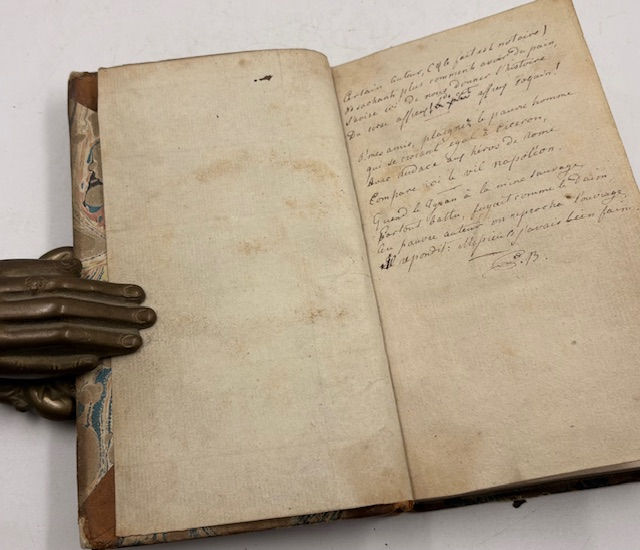 Certain auteur, (& le fait est notoire)
ne sachant plus comment avoir du pain,
s'avise ici de nous donner l'histoire
Du corse affreux affreux
ô mes amis, plaignez le pauvre homme
qui se croiant égal à Ciceron,
Avec audace aux héros de Rome
Compare ici le vil napoléon.
Quand le Tyran à la mine sauvage,
Partout battu, fuyait comme le Daim
Au pauvre auteur on reprocha l'ouvrage,
Il repondit: Messieurs j'avais bien faim.
B.